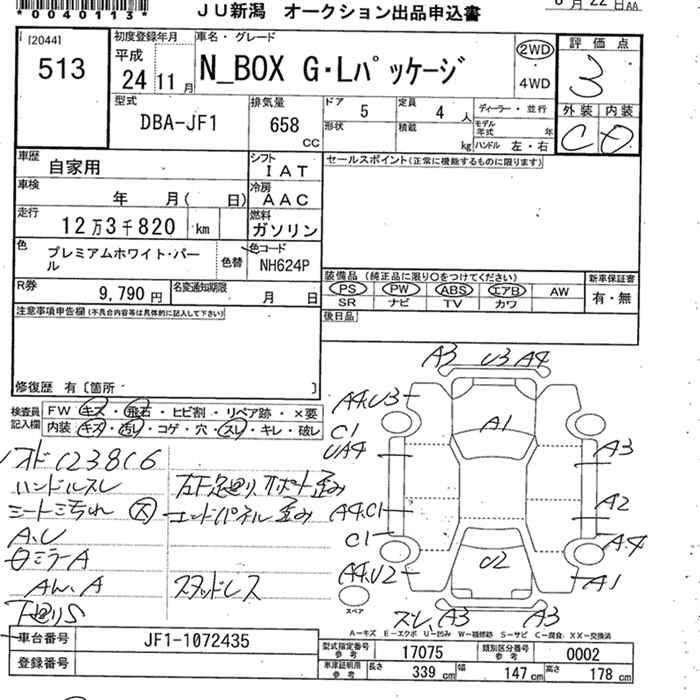 *0040113*
JU新潟 オークション出品申込書
6月22日AA
[2044]
513
初度登録年月
平成 24 11月
車名・グレード
N_BOX G・Lパッケージ
2WD
・
4WD
評価点
3
外装 内装
C D
型式
DBA-JF1
排気量
658 CC
ドア 5
定員 4人
形状
積載 kg
ディーラー・並行
モデル年式 年
ハンドル 左・右
車歴
自家用
シフト
IAT
セールスポイント(正常に機能するものに限ります)
車検
年 月( 日)
冷房
AAC
走行
12万3千820 km
燃料
ガソリン
色
プレミアムホワイト・パール
色替
色コード
NH624P
装備品 (純正品に限り○をつけてください)
PS PW ABS エアB AW
SR ナビ TV カワ
新車保証書
有・無
R券
9,790円
名変通知期限
月 日
後日品
注意事項申告欄(不具合内容等は具体的に記入して下さい)
修復歴 有〔箇所 〕
検査員記入欄
FW キズ・飛石・ヒビ割・リペア跡・×要
内装 キズ・汚れ・コゲ・穴・スレ・キレ・破レ
ハンドルスレ
シート汚れ
A.U
ミラーA
AW.A
下廻りS
左下足廻り サポート歪み
エンドパネル歪み
スタッドレス
A3 U3 A4
A4.U3
C1
UA4
A1
A3
A4.C1
C1
A2
A4
A4.U2
U2
A1
スペア
スレ A3 A3
A-キズ E-エクボ U-凹み W-補修跡 S-サビ C-腐食 XX-交換済
車台番号
JF1-1072435
登録番号
型式指定番号 参考
17075
類別区分番号 参考
0002
車庫証明用 参考
長さ 339 cm 幅 147 cm 高さ 178 cm